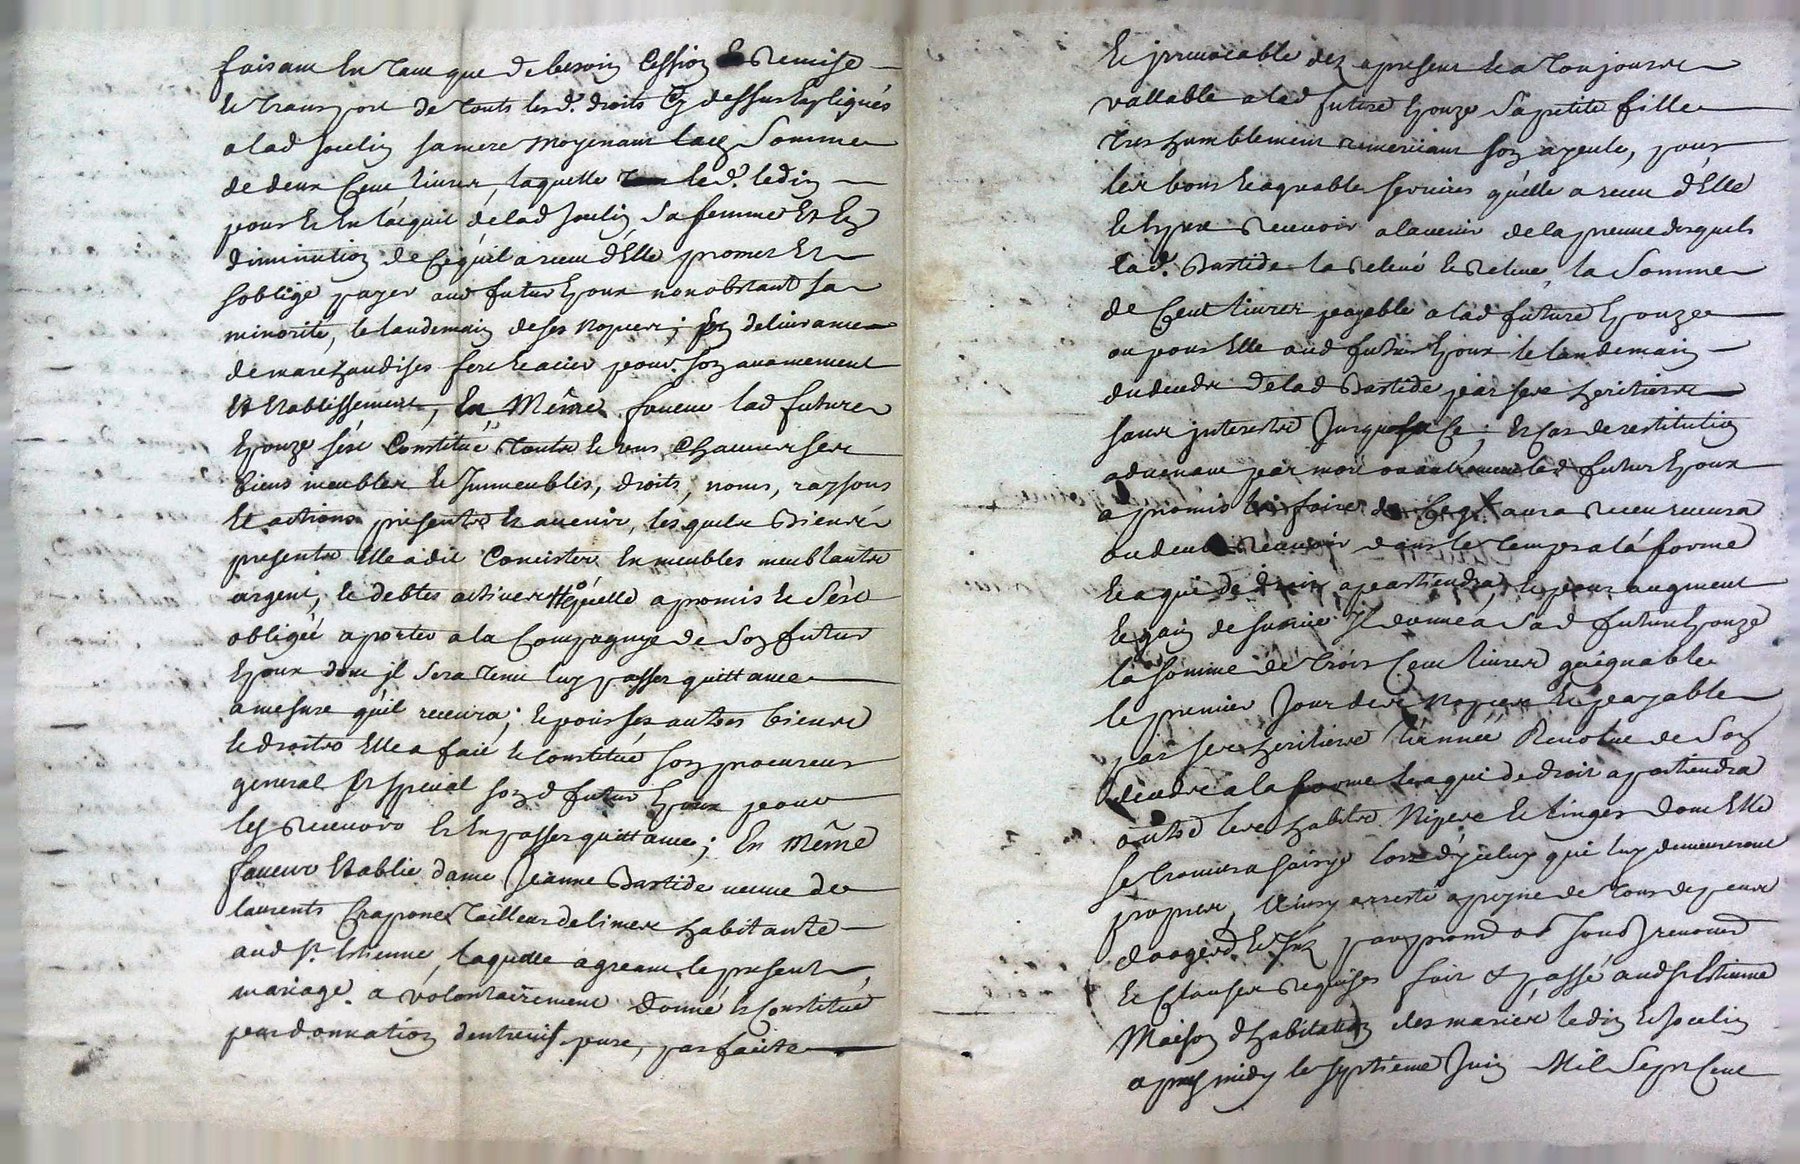 faisant en tant que de besoin cession et remise
et transport de touts lesd. droits cy dessus expliqués
a lad joulin sa mere moyenant lad somme
de deux cent livres, laquelle led. ledin
pour et en l'acquit de lad joulin sa femme et en
diminution de ce qu'il a receu d'Elle promet et
s'oblige payer aud futur epoux nonobstant sa
minorité, le landemain de ses nopces; en delivrance
de marchandises fer et acier pour son avancement
et etablissement, En Même faveur lad future
Epouze s'est Constitué toutes et uns chacuns ses
biens meubles et Immeubles, droits, noms, raysons
et actions presents et avenir, lesquels Biens
presents Elle a dit Concister en meubles meublants
argent, et debtes actives qu'elle a promis et s'est
obligée aporter a la Compagnye de son futur
Epoux dont il sera tenu luy passer quittance
a mesure qu'il recevra; et pour ses autres biens
et droits Elle a fait et constitué son procureur
general et special sond futur Epoux pour
les recevoir et en passer quittance; En Même
faveur Etablie dame Jeanne Bastide veuve de
laurents Crapone tailleur de limes habitante
aud St. Etienne, laquelle agreant le present
mariage a volontairement donné et constitué
par donnation d'entrevif pure, parfaite
Et irrevocable dez a present et a toujours
vallable a lad future Epouze sa petite fille
tres humblement remerciant son ayeule, pour
les bons et agreables services qu'elle a receu d'Elle
et espere recevoir a lavenir de la preuve desquels
lad. Bastide la relevé et releve la somme
de Cent livres payable a lad future Epouze
ou pour Elle aud futur Epoux le landemain
du deudx de lad Bastide par ses heritiers
sans interests Jusques a Ce; et cas de restitution
advenant par mort ou autrement led futur Epoux
a promis la faire de Ce qu'il aura receu recevra
ou deub recevoir dans le temps a la forme
et a qui de droit apartiendra, et pour augment
et gain de survie Il donne a sad future Epouze
la somme de trois Cent livres gaignable
le premier Jour de ses nopces et payable
par ses heritiers l'année revolue de son
deudx a la forme et a qui de droit apartiendra
outre les habits Nipes et linges dont Elle
se trouvera saisye lors d'yceluy qui luy demeureront
propres, Ainsy arresté a peyne de tous depens
domages et Inz par prom obl soub renoncé
et Clauses requises fait et passé aud St Etienne
Maison d'habitation des mariés ledin et Joulin
apres midy le septieme Juin Mil Sept Cent